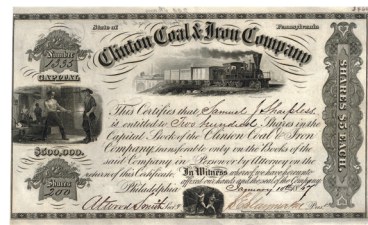 State of Pennsylvania
Number
1335
Clinton Coal & Iron Company
CAPITAL
$500,000.
Shares
200
SHARES $5 EACH
This Certifies that Samuel J Sharpless
is entitled to Two hundred Shares in the
Capital Stock of the Clinton Coal & Iron
Company, transferable only on the Books of the
said Company in Person or by Attorney on the
return of this Certificate. In Witness whereof we have hereunto
affixed our hands and the seal of the Company
Philadelphia January 10th 18
Alfred Smith